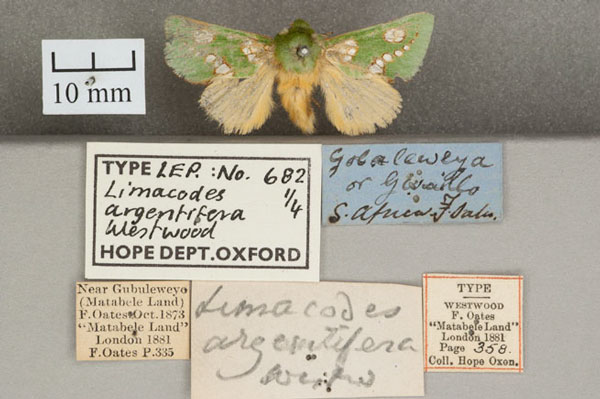 10 mm
TYPE LEP.: No. 682
Limacodes 1/4
argentifera
Westwood
HOPE DEPT. OXFORD
Gobuleweya
or
S. Africa F Oates.
Near Gubuleweyo
(Matabele Land)
F. Oates Oct. 1873
"Matabele Land"
London 1881
F. Oates P.335
Limacodes
argentifera
TYPE
WESTWOOD
F. Oates
"Matabele Land"
London 1881
Page 358.
Coll. Hope Oxon.